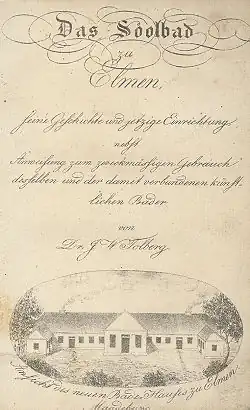 Das Soolbad
zu
Elmen,
seine Geschichte und jetzige Einrichtung
nebst
Anweisung zum zweckmässigen Gebrauch
desselben und der damit verbundenen künst-
lichen Bäder
von
Dr. J W Tolberg
Ansicht des neuen Bade-Hauses zu Elmen.
Magdeburg